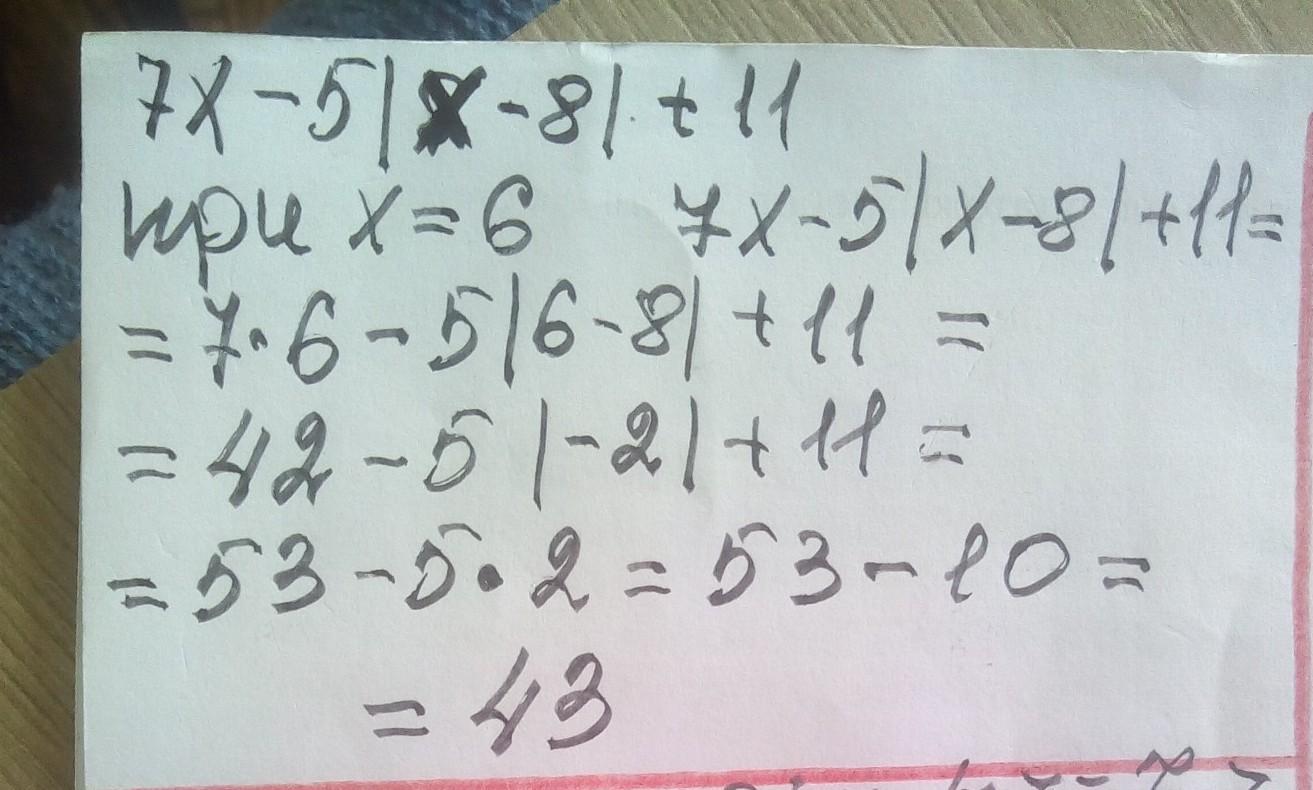 7x - 5|x - 8| + 11
при x = 6 7x - 5|x - 8| + 11 =
= 7·6 - 5|6 - 8| + 11 =
= 42 - 5 |-2| + 11 =
= 53 - 5·2 = 53 - 10 =
= 43